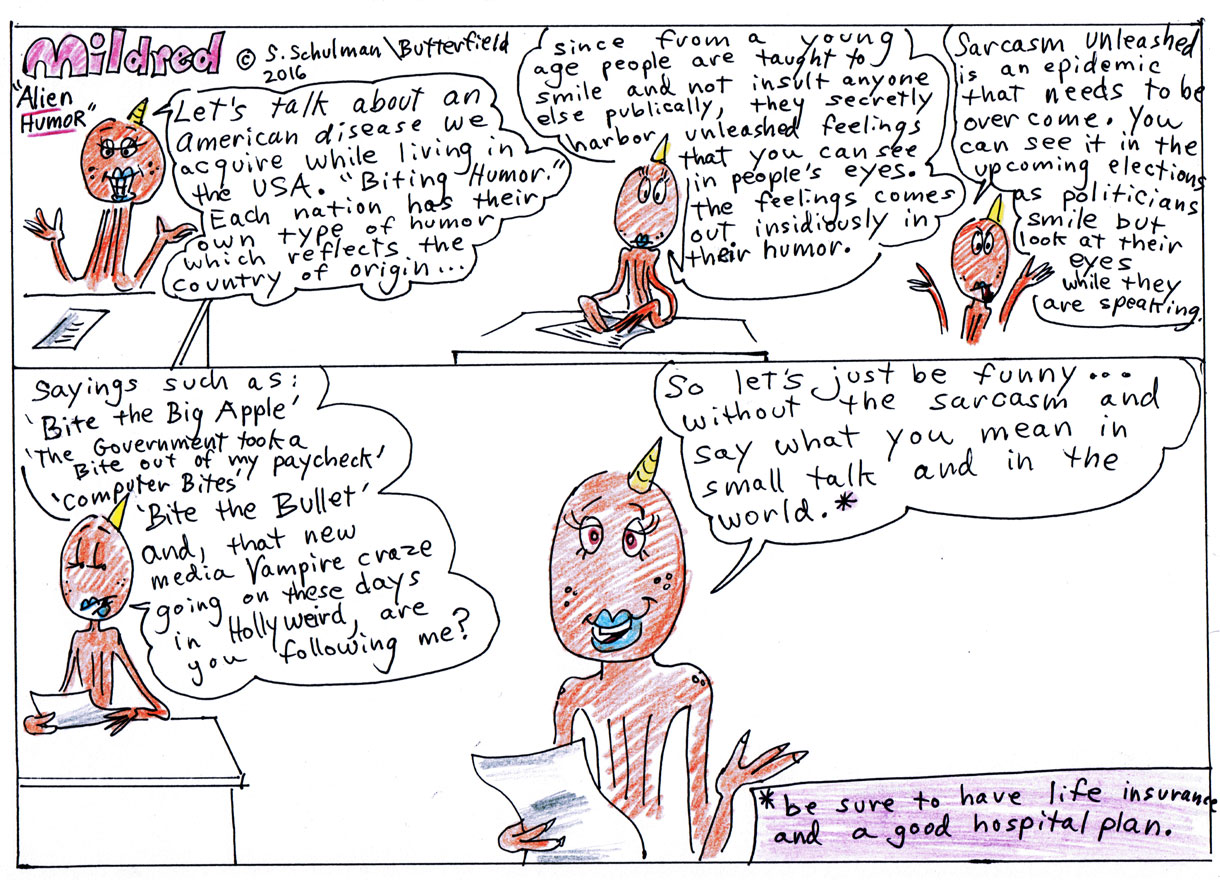 Mildred © S. Schulman\Butterfield
2016
"Alien
Humor"
Let's talk about an
American disease we
acquire while living in
the USA. "Biting Humor."
Each nation has their
own type of humor
which reflects the
country of origin...
since from a young
age people are taught to
smile and not insult anyone
else publically, they secretly
harbor unleashed feelings
that you can see
in people's eyes.
the feelings comes
out insidiously in
their humor.
Sarcasm unleashed
is an epidemic
that needs to be
over come. You
can see it in the
upcoming elections
as politicians
smile but
look at their
eyes
while they
are speaking.
Sayings such as:
'Bite the Big Apple'
'The Government took a
Bite out of my paycheck'
'Computer Bites'
'Bite the Bullet'
and, that new
media Vampire craze
going on these days
in Hollyweird, are
you following me?
So let's just be funny...
without the sarcasm and
say what you mean in
small talk and in the
world.*
*be sure to have life insurance
and a good hospital plan.